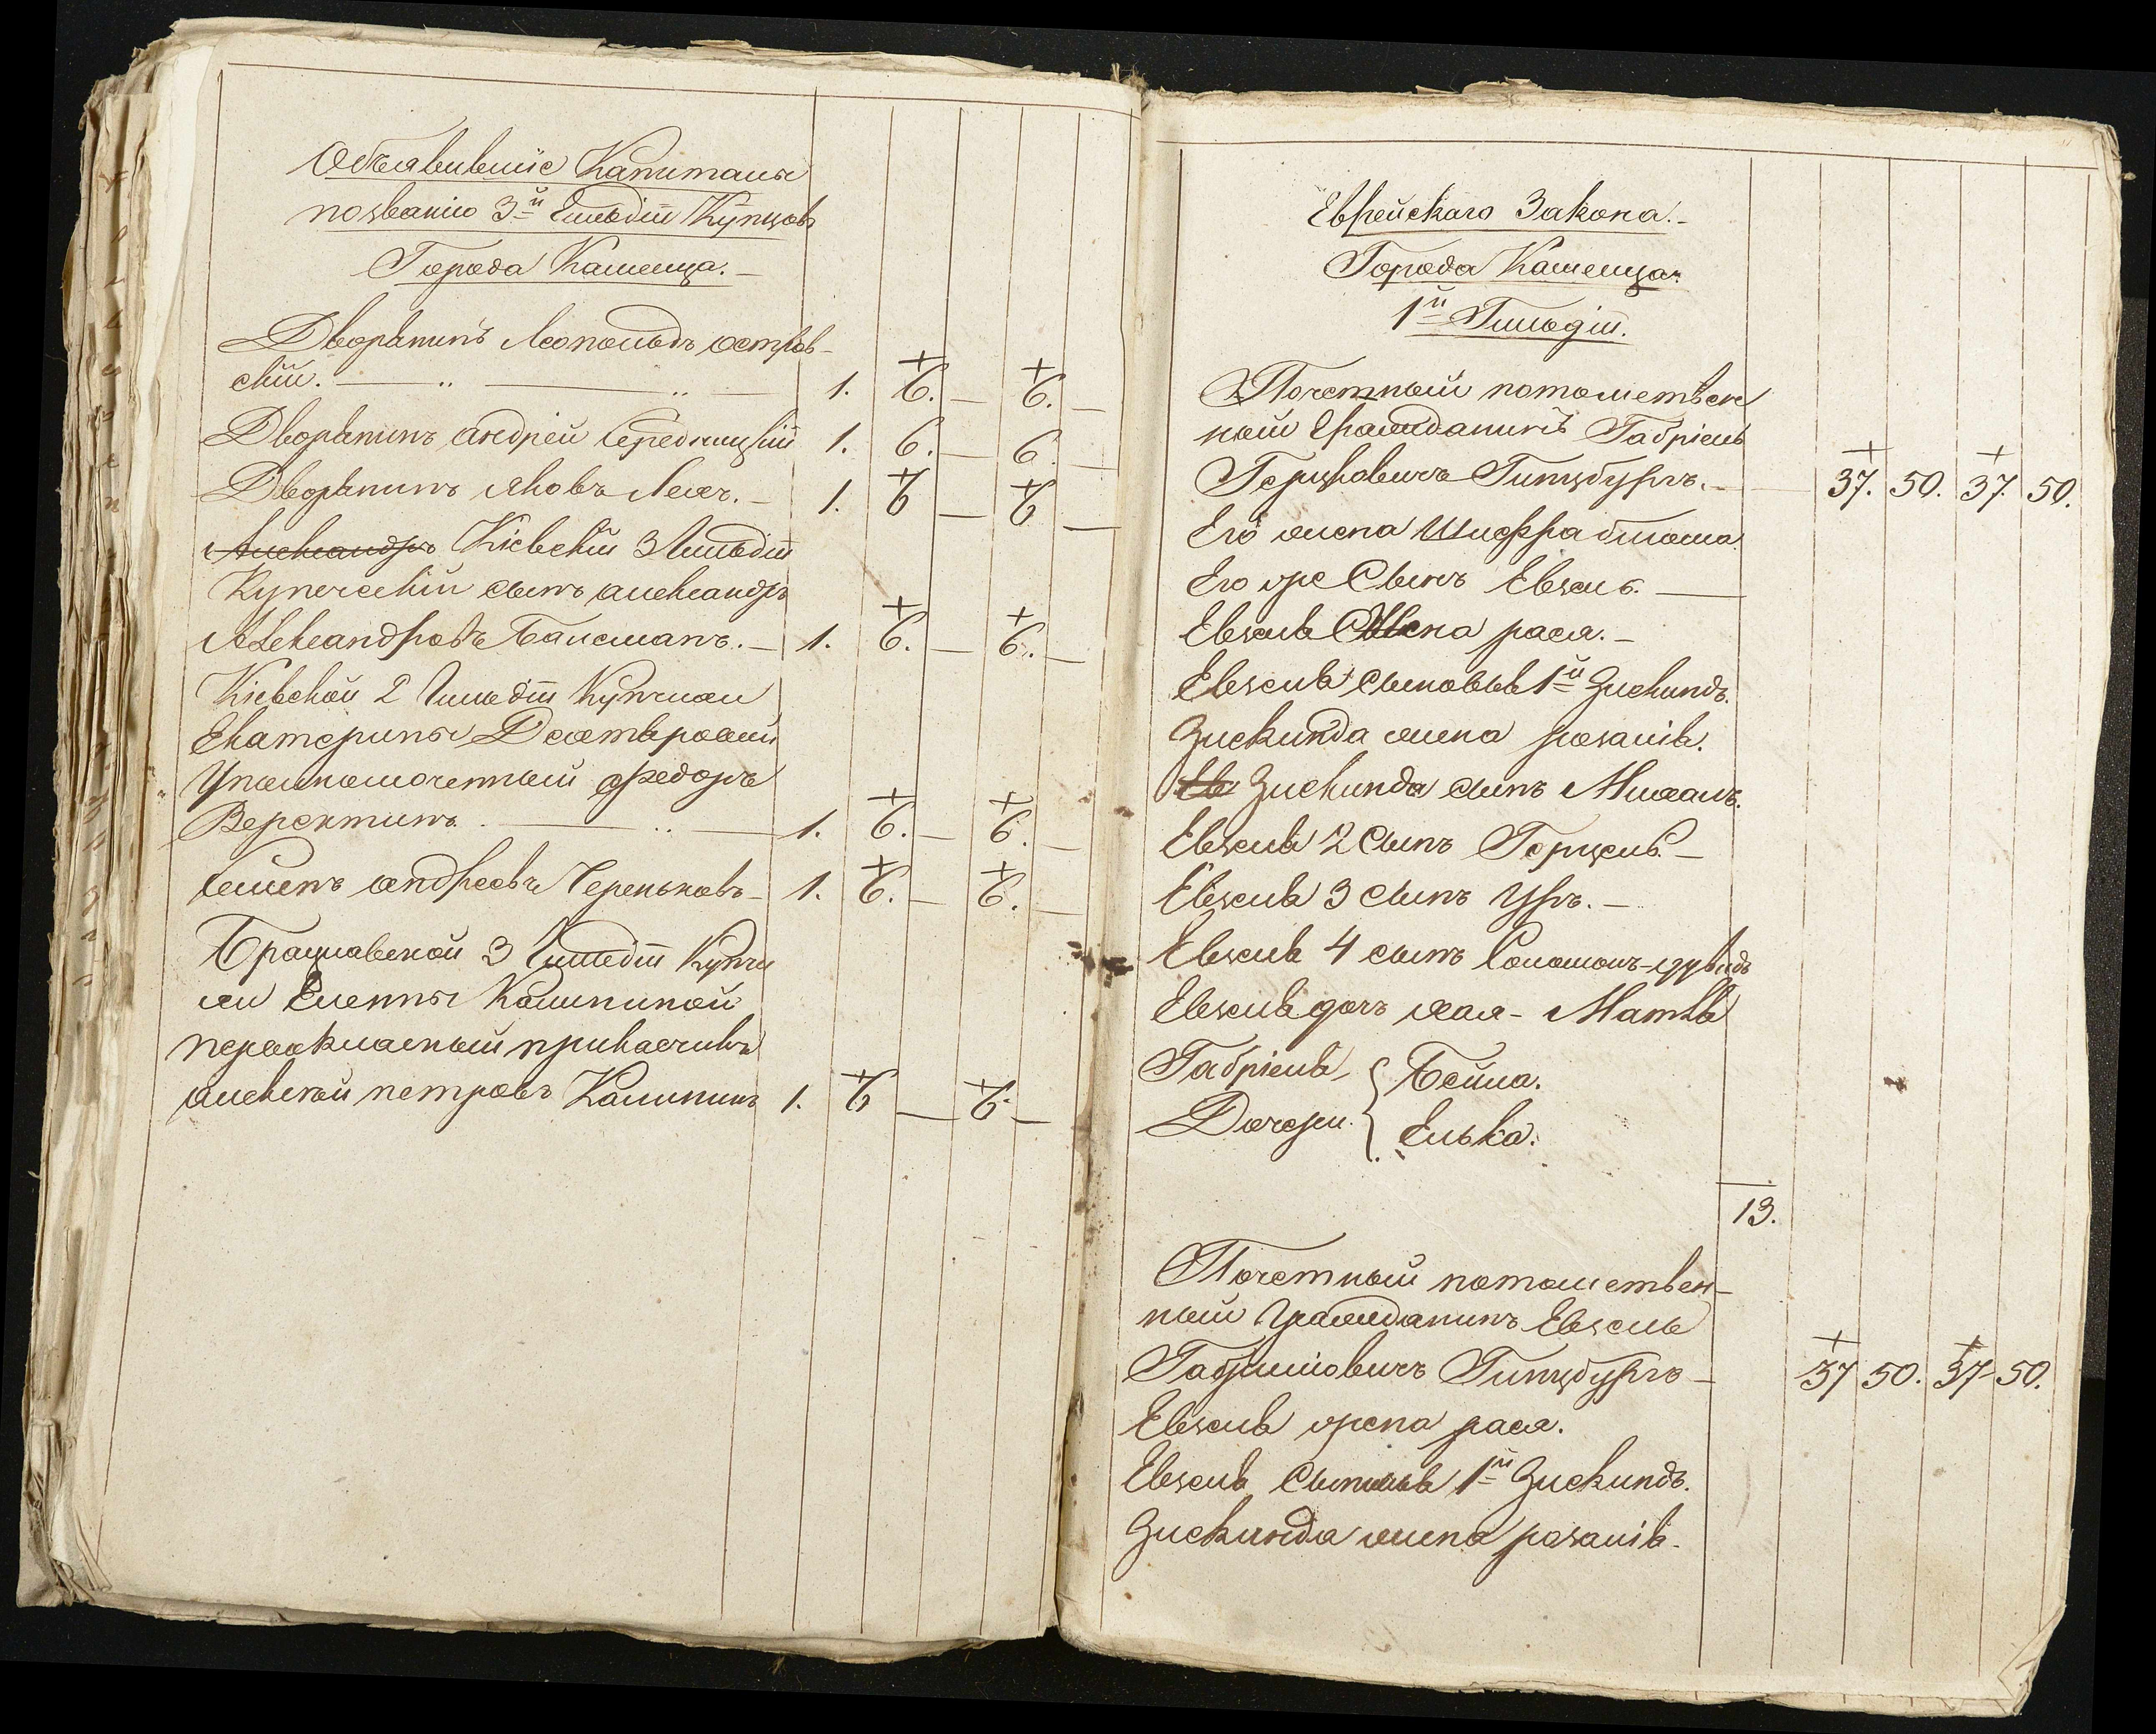 Объявившіе Капиталы
по званію 3й Гильдіи Купцовъ
Города Каменца.
Дворянинъ Леопольдъ Остров-
скій. 1. 6. — 6. —
Дворянинъ Андрей Середницкій 1. 6. — 6. —
Дворянинъ Яковъ 1. 6 — 6 —
Александръ Кіевскій 3 Гильдіи
Купеческій сынъ Александръ
Александровъ Балсманъ. — 1. 6. — 6. —
Кіевской 2 Гильдіи Купчихи
Екатерины
Уполномоченный Федоръ
1. 6. — 6. —
Семенъ Андреевъ Череньковъ 1. 6. — 6. —
Брацлавской 3 Гильдіи Купчи
хи Еленны Калининой
первокласный прикасчикъ
Алексѣй Петровъ Калининъ 1. 6 — 6. —
Еврейскаго Закона. —
Города Каменца.
1й Гильдіи.
Почетный потомствен
ный Гражданинъ Габріель
Герцковичъ Гинцбургъ. — 37. 50. 37. 50.
Его жена
Его же Сынъ Евзель. —
Евзеля Жена Рася. —
Евзеля сыновья 1й Зискиндъ.
Зискинда жена Розалія.
Ев Зискинда сынъ Михаль.
Евзеля 2 сынъ Герцель —
Евзеля 3 сынъ Уръ. —
Евзеля 4 сынъ Соломонъ-Дувидъ
Евзеля дочь Хая - Матля
Габріеля { Бейла.
Дочери. { Елька.
13.
Почетный потомствен-
ный Гражданинъ Евзель
Габриліовичъ Гинцбургъ — 37 50. 37 50.
Евзеля жена Рася.
Евзеля Сыновья 1й Зискиндъ.
Зискинда жена Розалія.